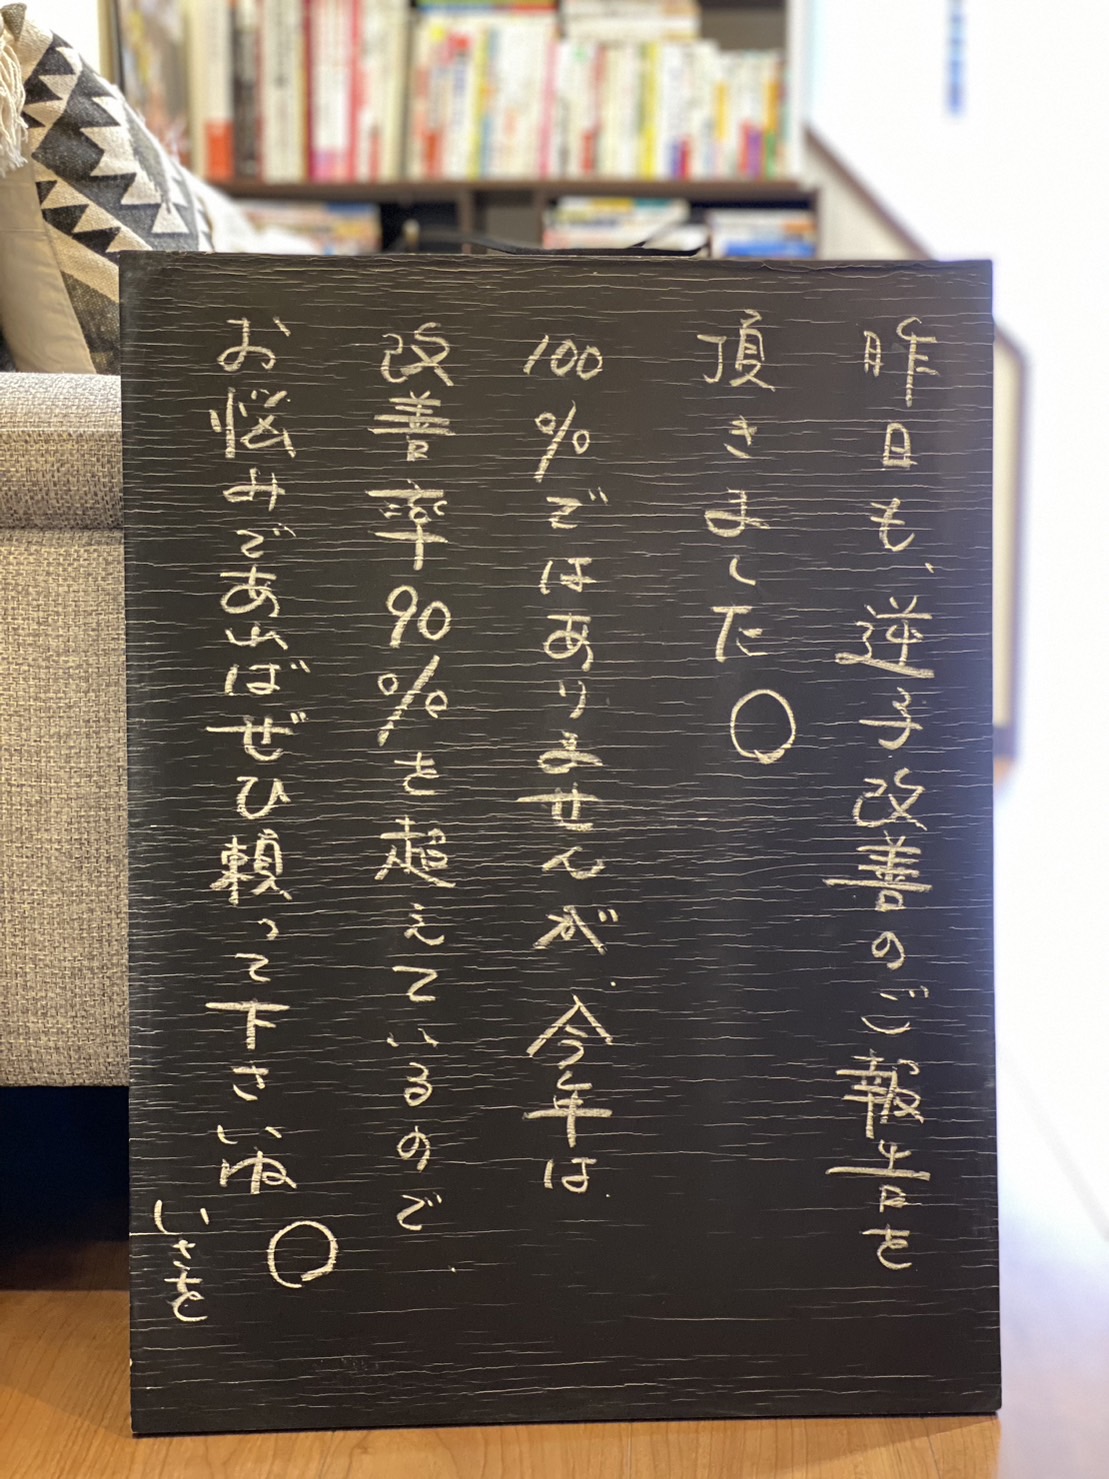 昨日も、逆子改善のご報告を
頂きました○
100%ではありませんが、今年は、
改善率90%を超えているので、
お悩みであればぜひ頼って下さいね○
いさと